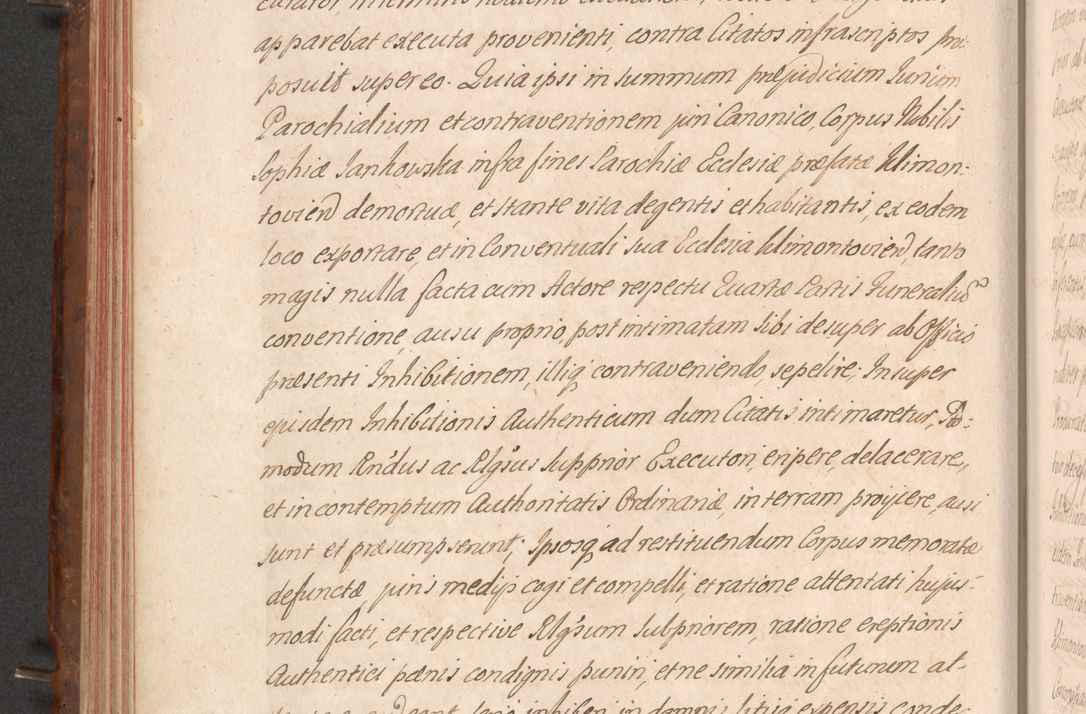 apparebat executa provenienti, contra Citatos infrascriptos pro-
posuit super eo. Quia ipsi in summum præjudicium Jurium
Parochialium et contraventionem juri Canonico, Corpus Nobilis
Sophiæ Jankowska infra fines Parochiæ Ecclesiæ præfatæ Klimon-
tovien demortuæ, et stante vita degentis et habitantis, ex eodem
loco exportare, et in Conventuali sua Ecclesia Klimontovien, tanto
magis nulla facta cum Actore respectu Quartæ Partis Funeralium
conventione, ausu proprio, post intimatam sibi desuper ab Officio
præsenti Inhibitionem, illiq contraveniendo, sepelire; Insuper
ejusdem Inhibitionis Authenticum dum Citatis intimaretur,
modum Rndus ac Rlgsus Supprior Executori, eripere, delacerare,
et in contemptum Authoritatis Ordinariæ, in terram proijcere, ausi
sunt et præsumpserunt; Ipsosq ad restituendum Corpus memoratæ
defunctæ, juris medijs cogi et compelli, et ratione attentati hujus-
modi facti, et respective Rlgsum Subpriorem, ratione ereptionis
Authentici pænis condignis puniri, et ne similia in futurum at-